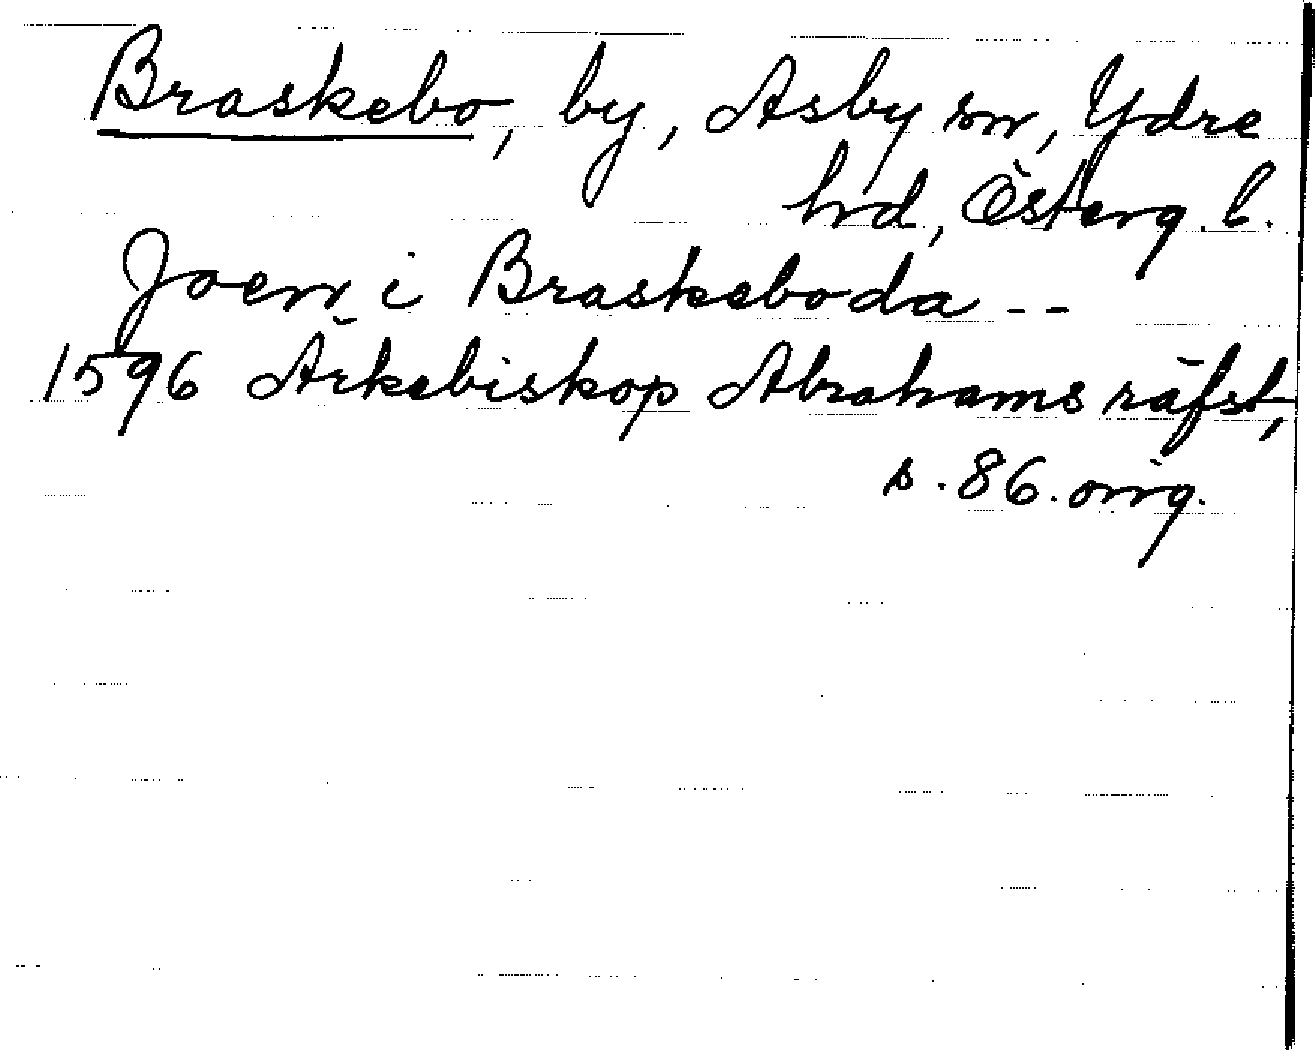 Braskebo, by, Asby sn, Ydre
hd, Österg. l.
Joen i Braskeboda --
1596 Ärkebiskop Abrahams räfst,
s. 86. orig.